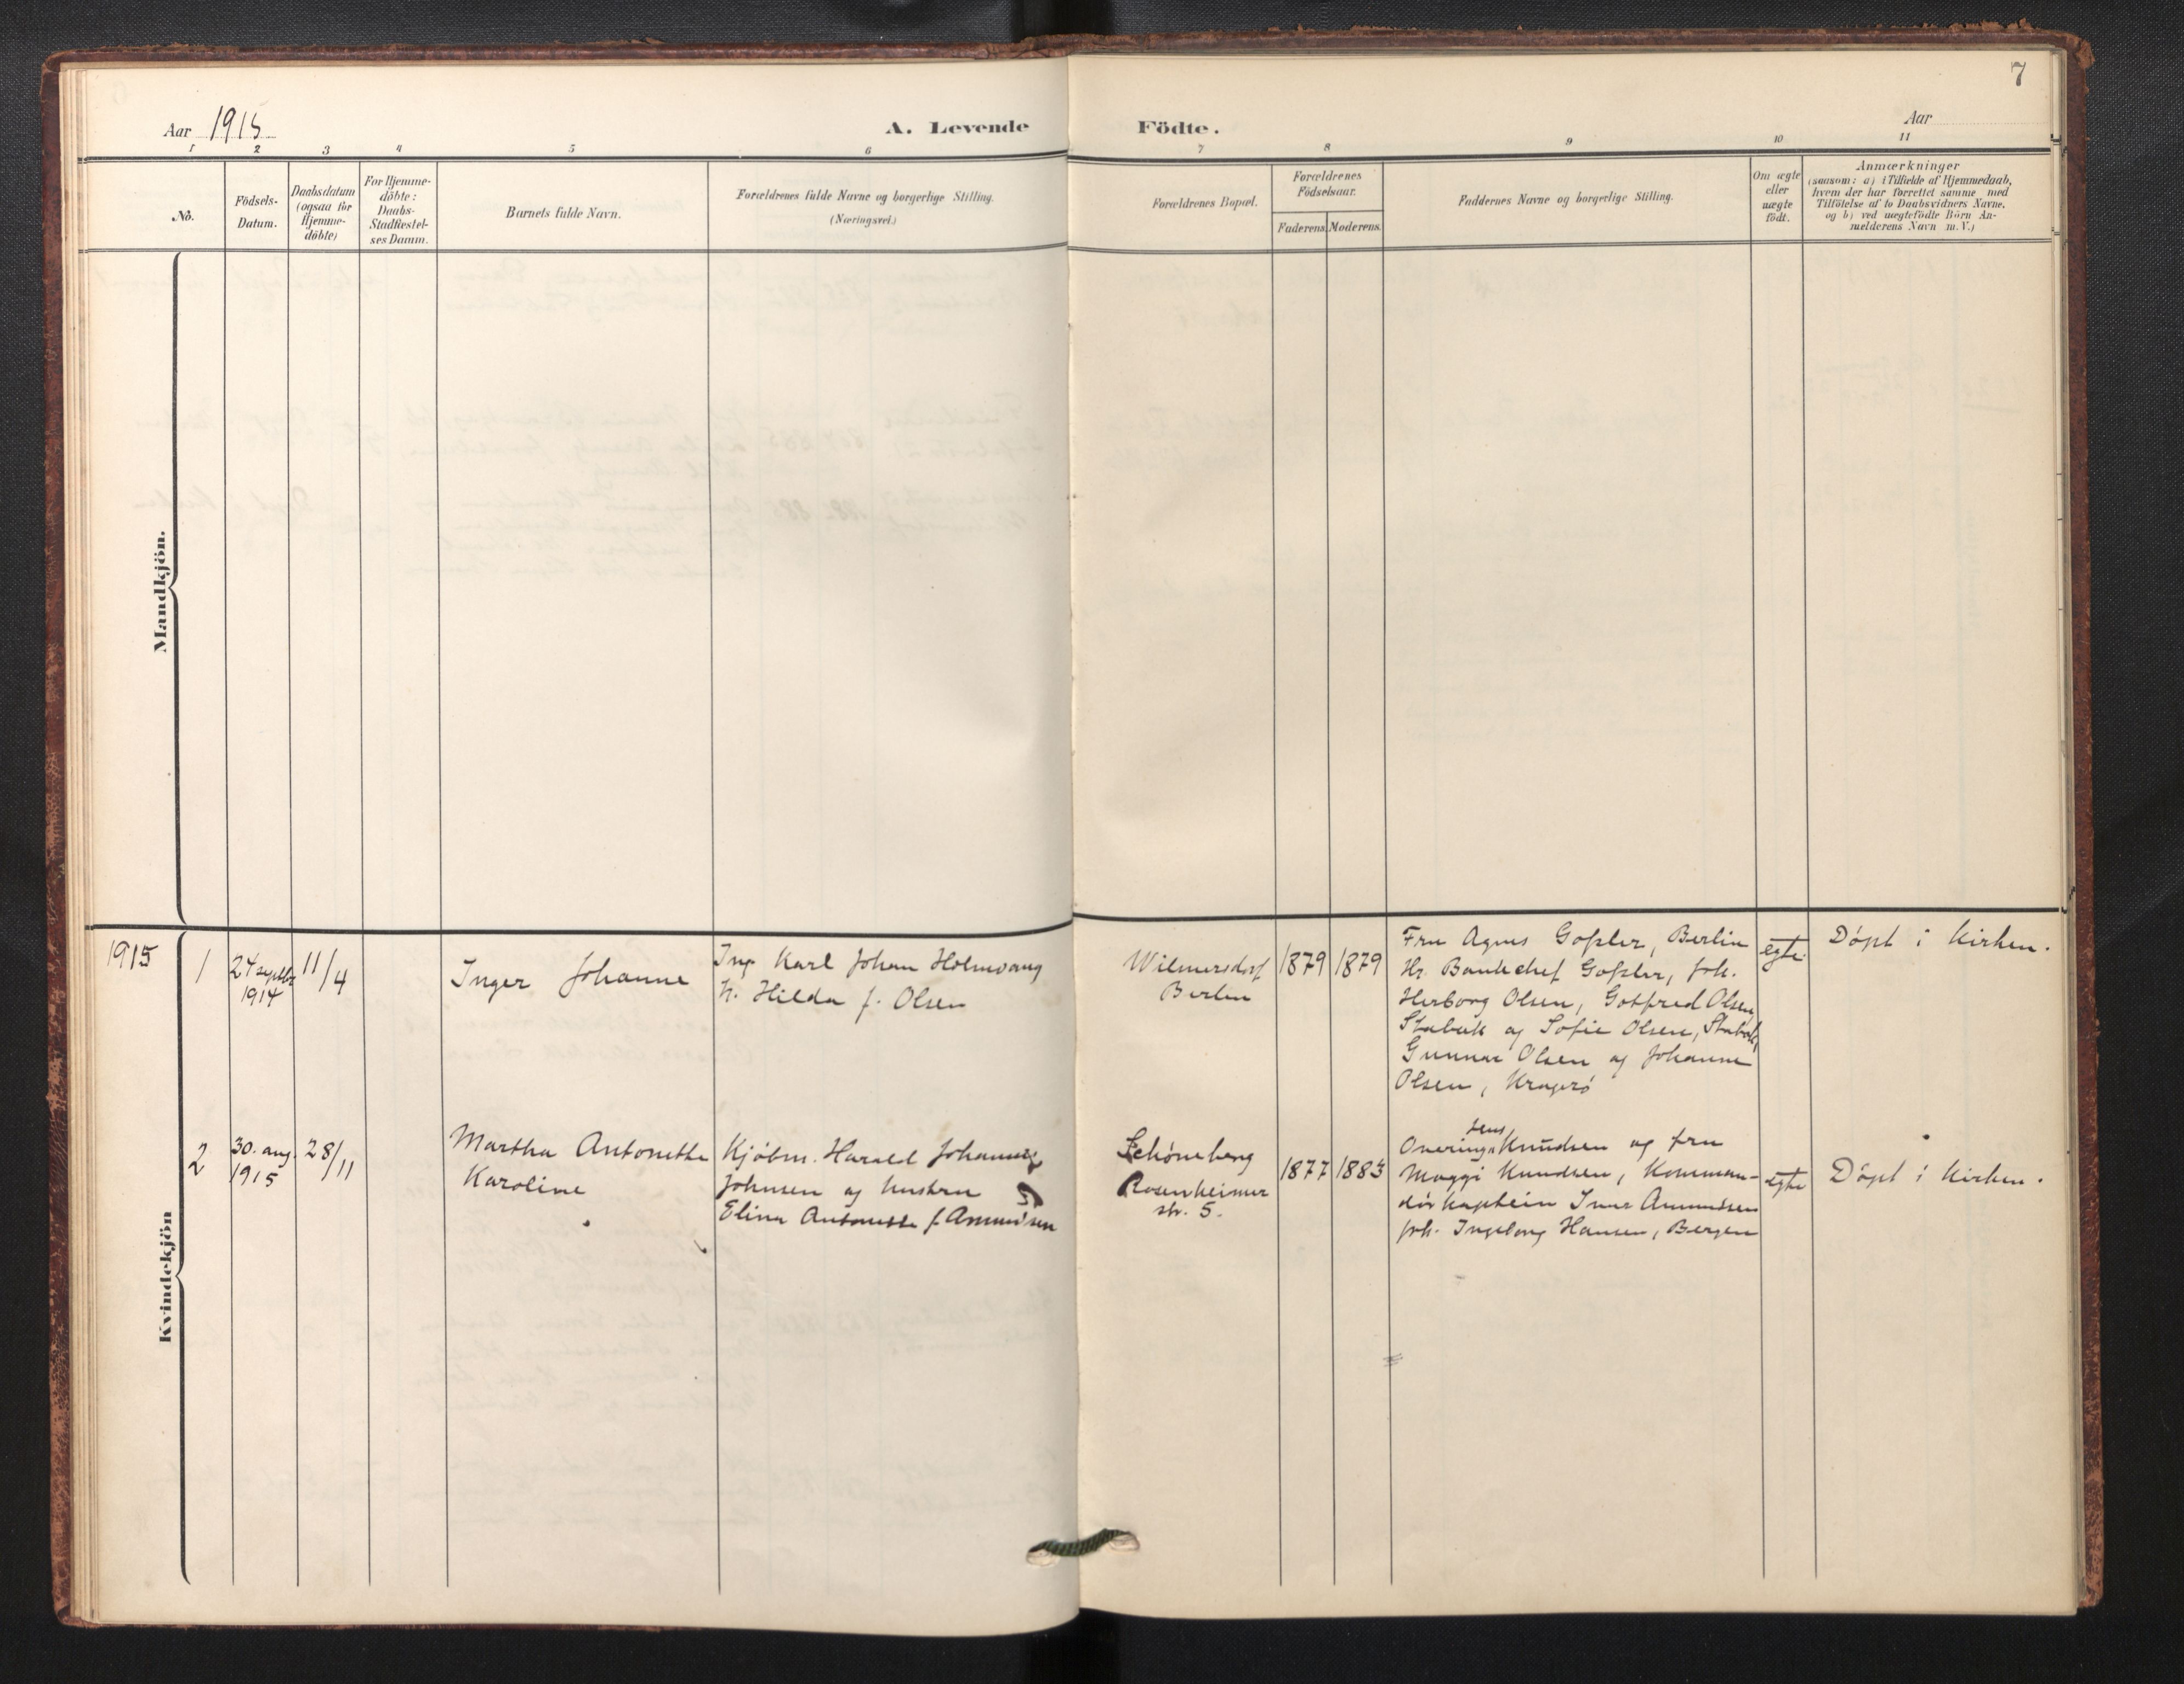 7
Aar 1915
A. Levende Födte.
Aar
1 2 3 4 5 6 7 8 9 10 11
No.
Födsels-
Datum.
Daabsdatum
(ogsaa for
Hjemme-
döbte)
For Hjemme-
döbte:
Daabs-
Stadfæstel-
ses Datum.
Barnets fulde Navn.
Forældrenes fulde Navne og borgerlige Stilling.
(Næringsvei.)
Forældrenes Bopæl.
Forældrenes
Födselsaar.
Faderens. Moderens.
Faddernes Navne og borgerlige Stilling.
Om ægte
eller
uægte
födt.
Anmærkninger
(saasom: a) i Tilfælde af Hjemmedaab,
hvem der har forrettet samme med
Tilföielse af to Daabsvidners Navne,
og b) ved uægtefödte Börn An-
melderens Navn m. V.)
Mandkjön.
Kvindekjön
1915
1
24 septbr
1914
11/4
Inger Johanne
Ing. Karl Johan Holmvang
h. Hilda f. Olsen
Wilmersdorf
Berlin
1879
1879
Fru Agnes Gossler, Berlin
Hr. Bankchef Gossler, frk.
Herborg Olsen, Gotfred Olsen,
Stabæk og Sofie Olsen, Stabæk,
Gunnar Olsen og Johanne
Olsen, Kragerö
egte.
Döpt i Kirken.
2
30. aug.
1915
28/11
Martha Antonette
Karoline
Kjöbm. Harald Johannes
Johnsen og hustru
Elina Antonette f. Amundsen
Schöneberg
Rosenheimer
str. 5.
1877
1883
Jens
Knudsen og fru
Maggi Knudsen, Komman-
dörkaptein Amundsen
frk. Ingeborg Hansen, Bergen
egte
Döpt i Kirken.